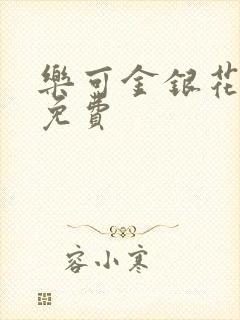 樂可金銀花
免費
容小寒